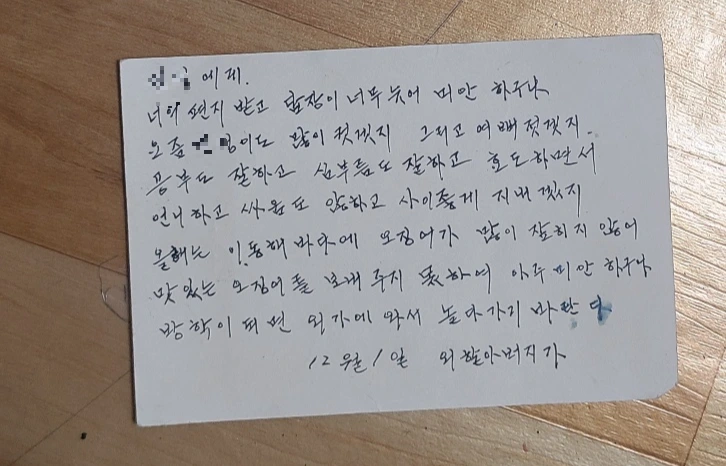 에게.
너의 편지 받고 답장이 너무 늦어 미안 하구나
요즘 이도 많이 컷겟지 그리고 예뻐졋겟지.
공부도 잘하고 심부름도 잘하고 효도하면서
언니하고 싸움도 않하고 사이좋게 지내겟지
올해는 이동해바다에 오징어가 많이 잡히지 않어
맛있는 오징어를 보내주지 못하여 아주 미안 하구나
방학이 되면 외가에 와서 놀다가기 바란다
12월 1일 외할아버지가